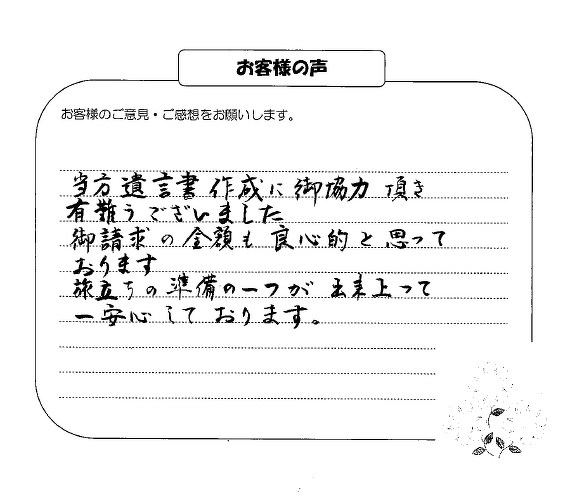 お客様の声
お客様のご意見・ご感想をお願いします。
当方遺言書作成に御協力頂き
有難うございました
御請求の金額も良心的と思って
おります
旅立ちの準備の一つが出来上って
一安心しております。